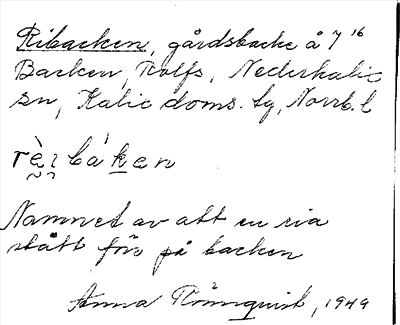 Ribacken, gårdsbacke å 7¹⁶
Backen, Rolfs, Nederkalix
sn, Kalix doms. tg, Norrb. l
Namnet av att en ria
stått för på backen
Anna Rönnquist, 1949